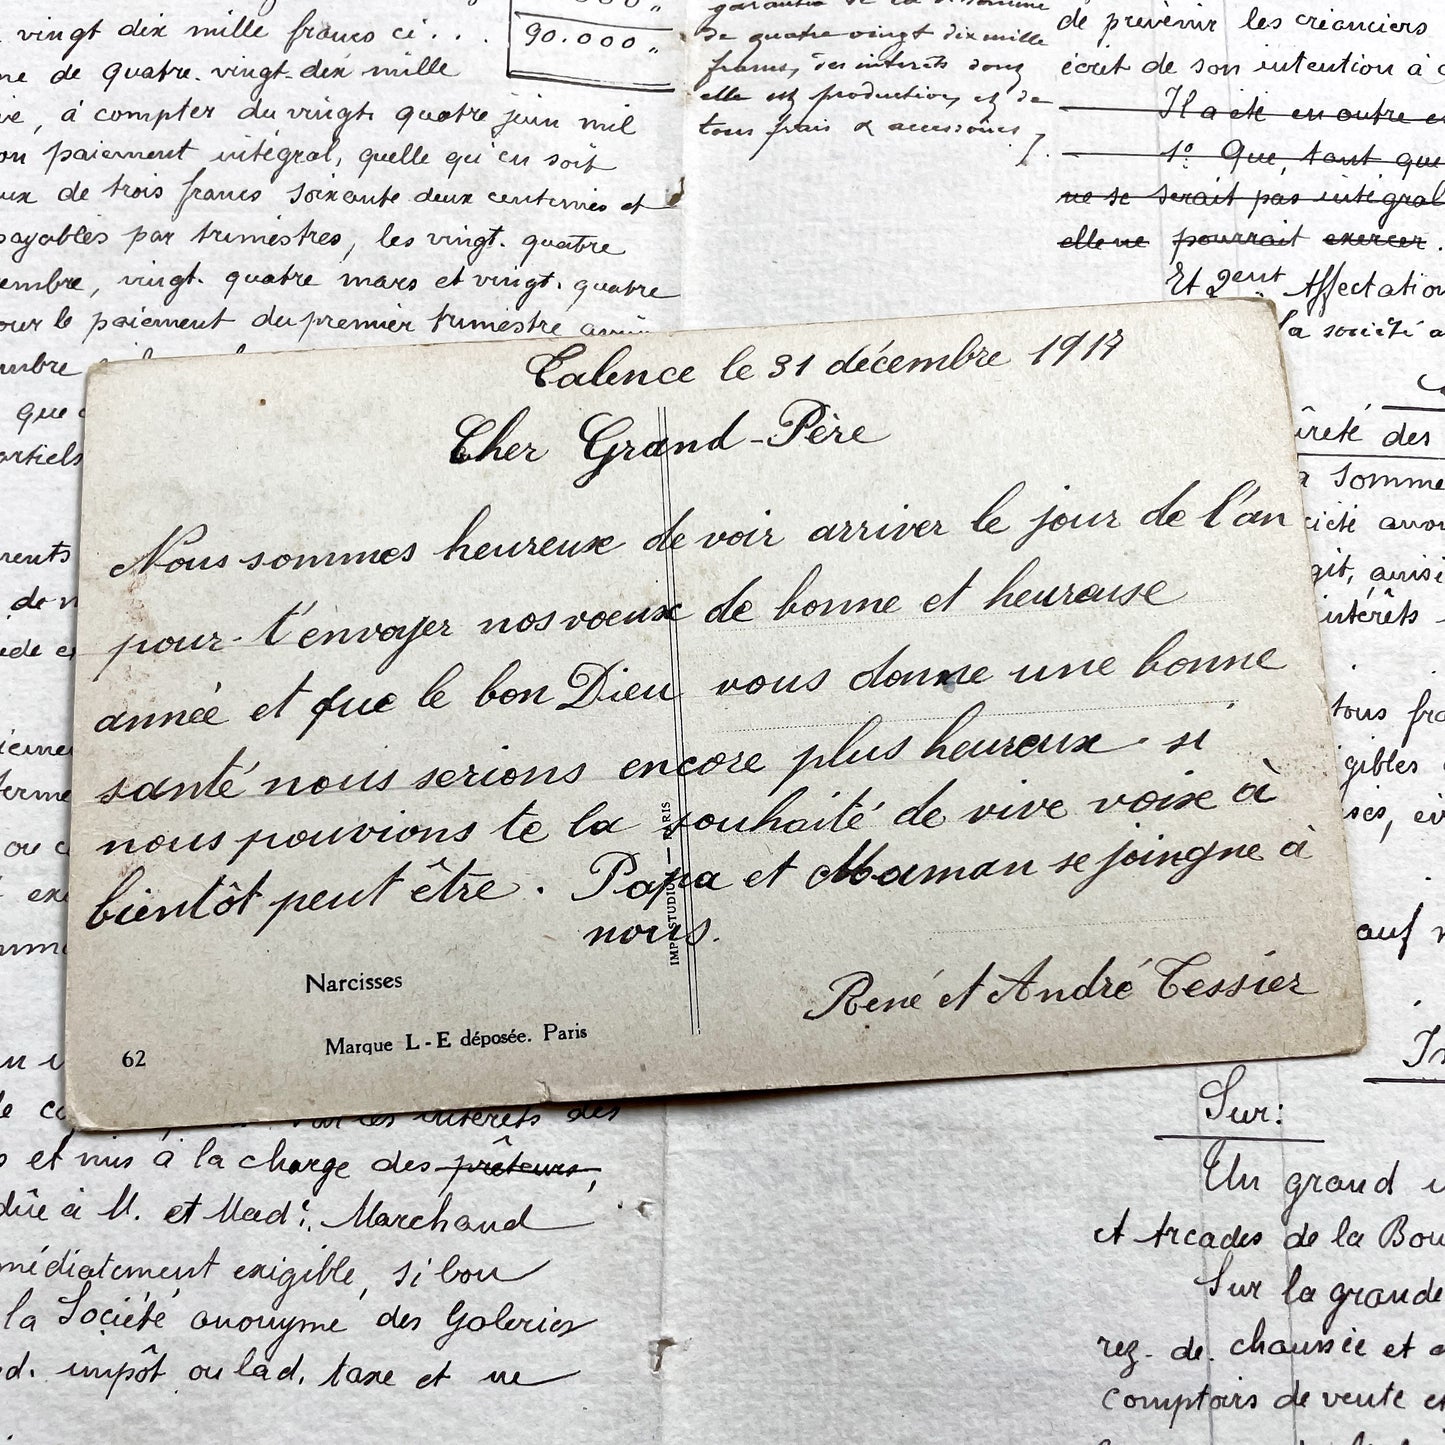 vingt dix mille francs ci . . .
90.000 „
de quatre-vingt-dix mille
, à compter du vingt quatre juin mil
paiement intégral, quelle qu'en soit
de trois francs soixante deux centimes et
payables par trimestres, les vingt. quatre
embre, vingt. quatre mars et vingt. quatre
our le paiement du premier trimestre
mbre
que
artiels
de quatre vingt dix mille
francs, des interets dont
elle est production, et de
tous frais & accessoires /.
de prévenir les créanciers
écrit de son intention à
Il a été en outre
1° Que, tant que
ne se serait pas intégral
elle ne pourrait exercer.
Et 2ent Affectation
la société a
ûreté des
Somme
ciété
git, ainsi
intérêts
tous fra
gibles
Talence le 31 décembre 1917
Cher Grand-Père
Nous sommes heureuse de voir arriver le jour de l'an
pour t'envoyer nos voeux de bonne et heureuse
année et que le bon Dieu vous donne une bonne
santé nous serions encore plus heureux si
nous pouvions te la souhaité de vive voixe à
bientôt peut être. Papa et Maman se joingne à
nous.
René et André Tessier
IMP. STUDIO — PARIS
Narcisses
Marque L-E déposée. Paris
62
auf
intérêts des
et mis à la charge des prêteurs,
dûe à M. et Made. Marchand
médiatement exigible, si bon
la Société anonyme des Galeries
d. impôt ou lad. taxe et ne
Sur:
Un grand
et Arcades de la Bou
Sur la grande
rez. de. chaussée et
comptoirs de vente et